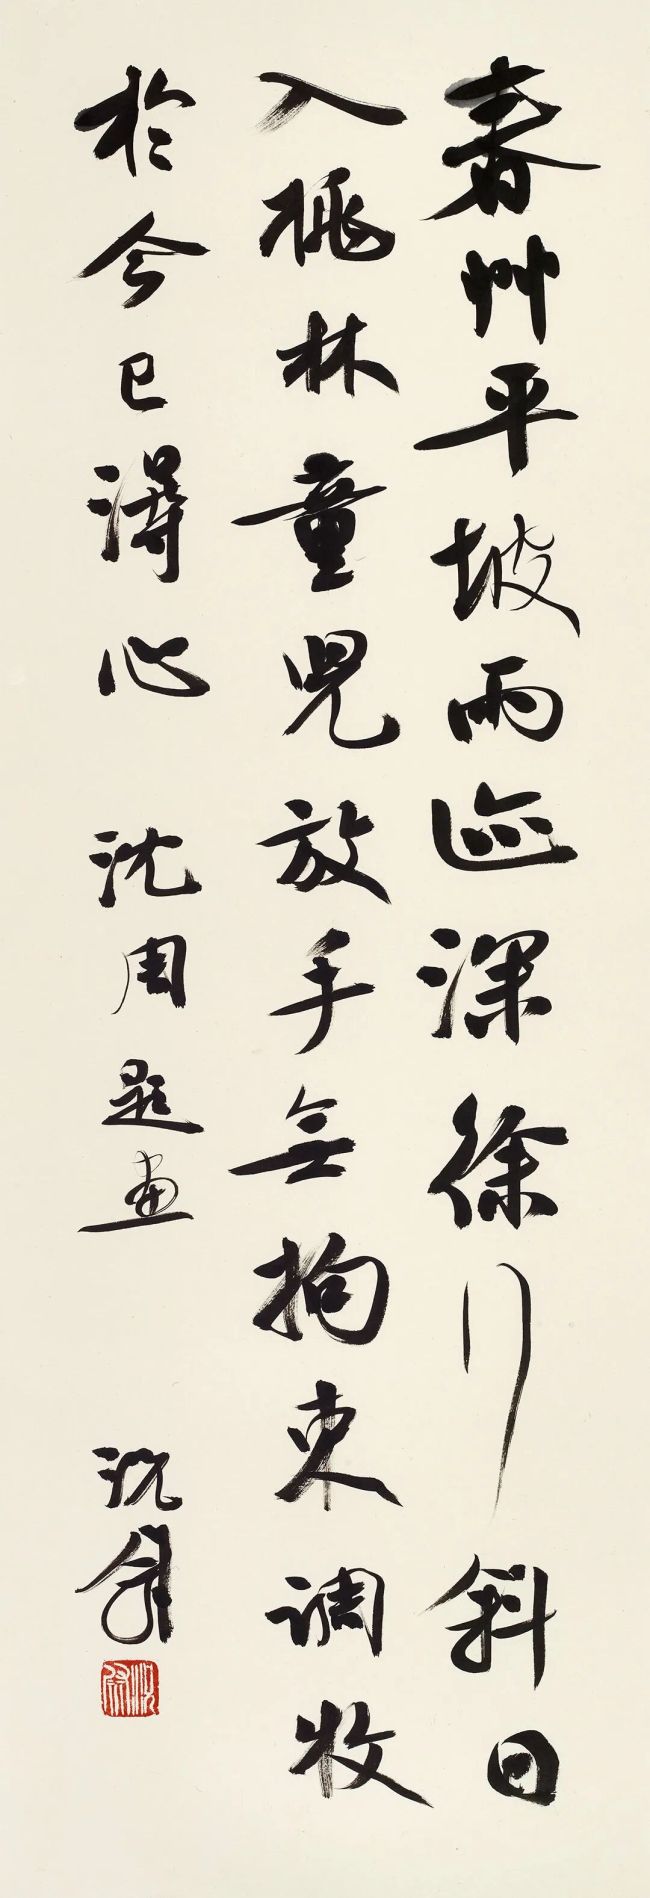 春艸平坡雨迹深徐行斜日
入桃林童児放手無拘束调牧
於今已得心 沈周题画
沈鹏